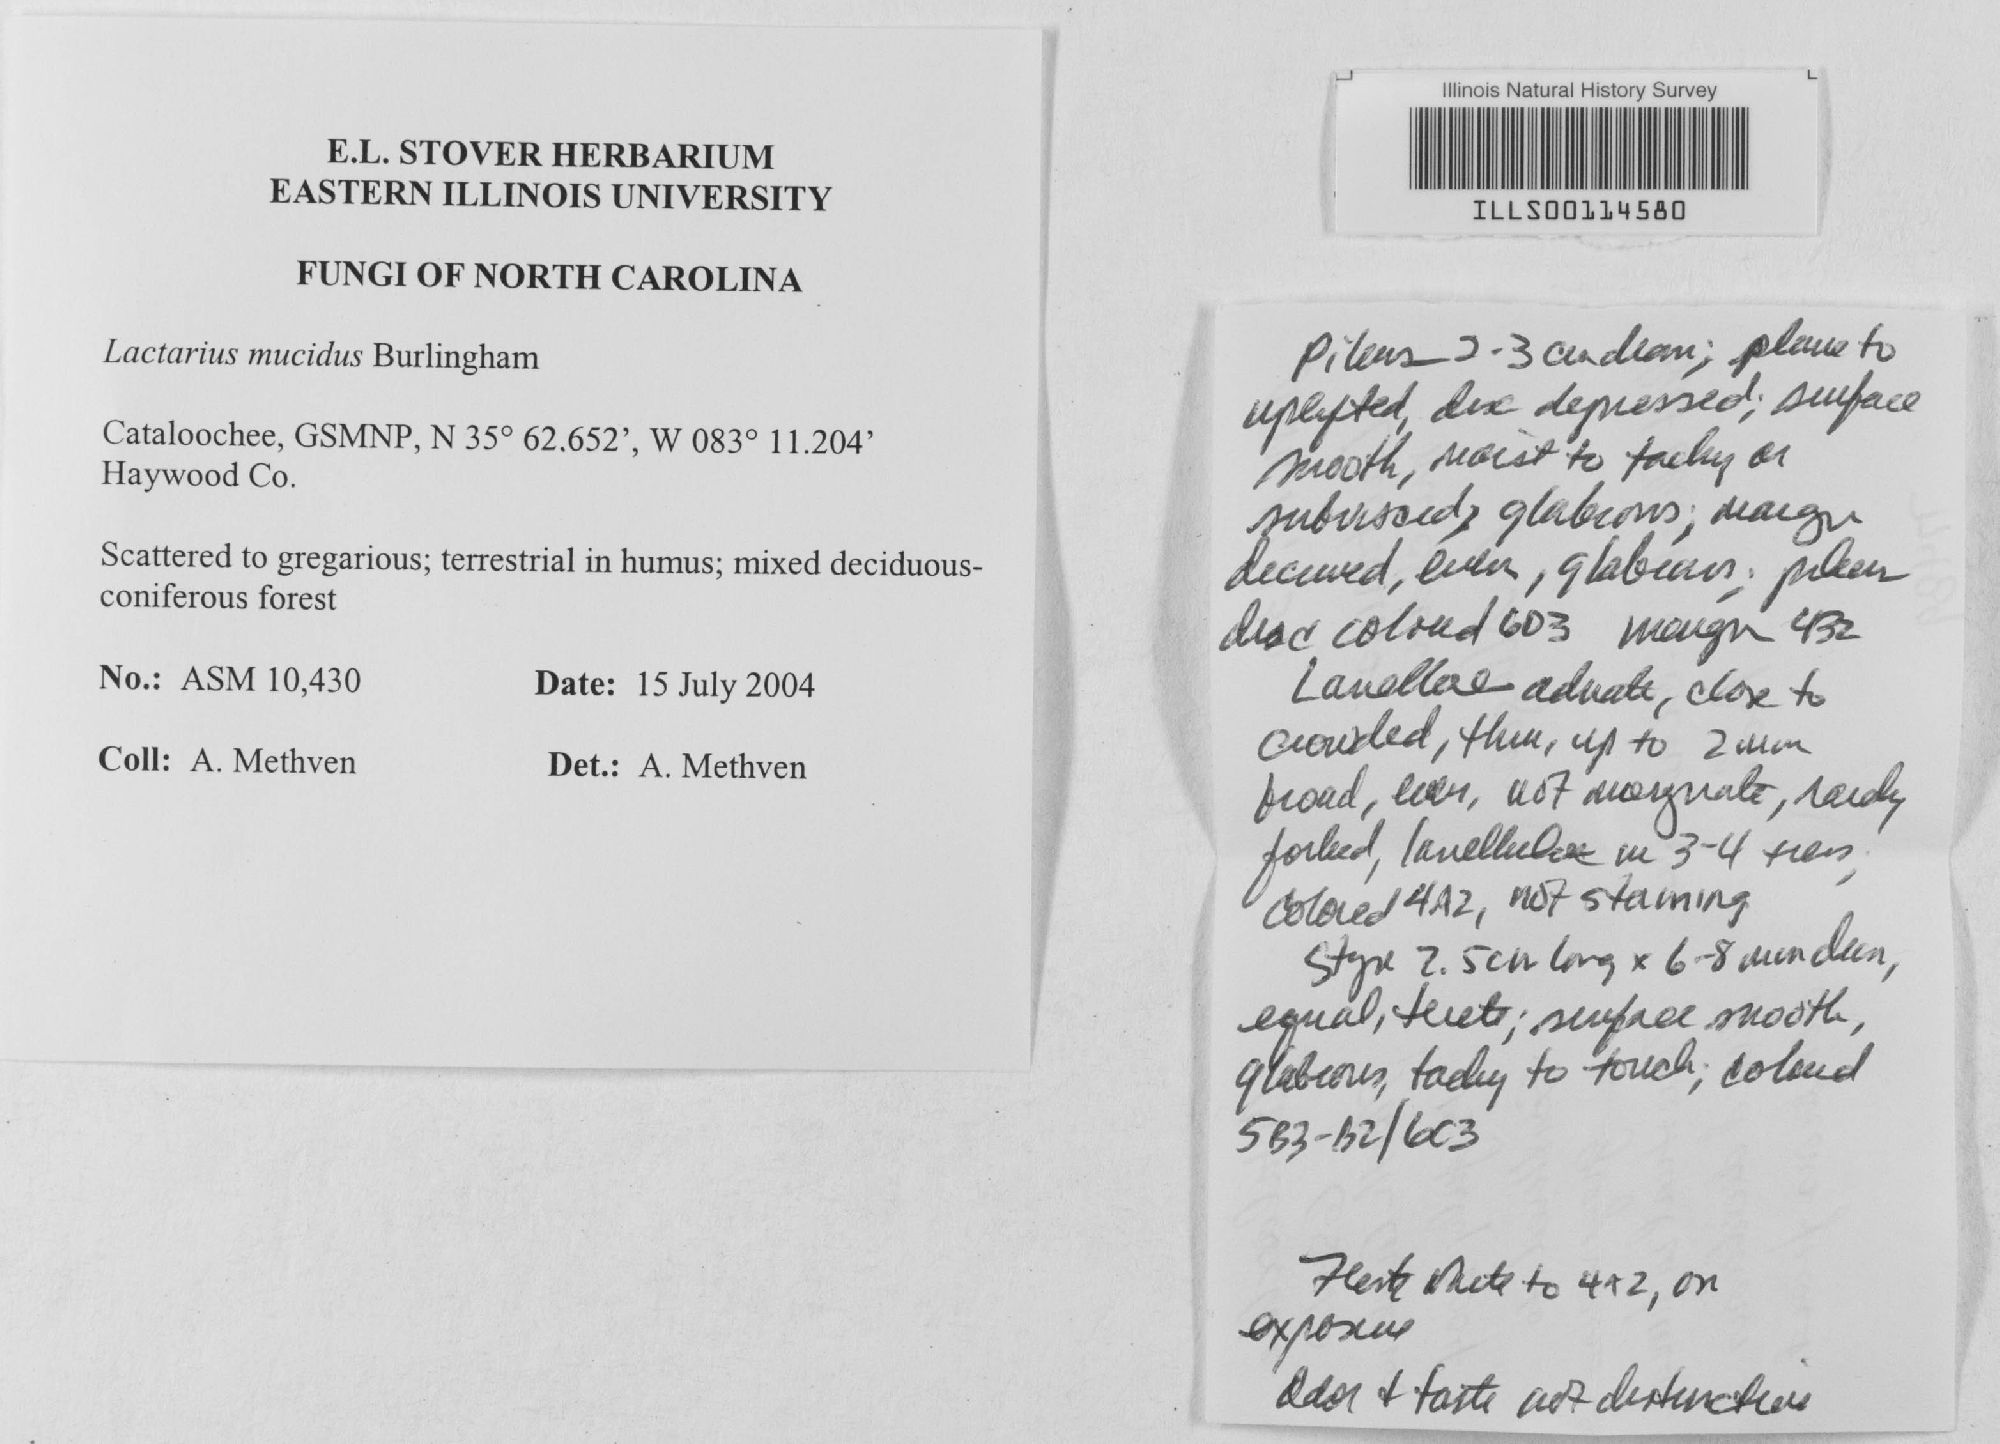 E.L. STOVER HERBARIUM
EASTERN ILLINOIS UNIVERSITY
FUNGI OF NORTH CAROLINA
Lactarius mucidus Burlingham
Cataloochee, GSMNP, N 35° 62.652’, W 083° 11.204’
Haywood Co.
Scattered to gregarious; terrestrial in humus; mixed deciduous-
coniferous forest
No.: ASM 10,430 Date: 15 July 2004
Coll: A. Methven Det.: A. Methven
Illinois Natural History Survey
ILLS00114580
Pileus 2-3 cm diam; plane to
uplifted, disc depressed; surface
smooth, moist to tacky or
subviscid, glabrous; margin
decurved, even, glabrous; pileus
disc colored 6D3 margin 4B2
Lamellae adnate, close to
crowded, thin, up to 2 mm
broad, even, not marginate, rarely
forked, lamellulae in 3-4 tiers,
colored 4A2, not staining
Stipe 2.5 cm long x 6-8 mm diam,
equal, terete; surface smooth,
glabrous, tacky to touch; colored
5B3-B2/6C3
Flesh white to 4A2, on
exposure
Odor + taste not distinctive